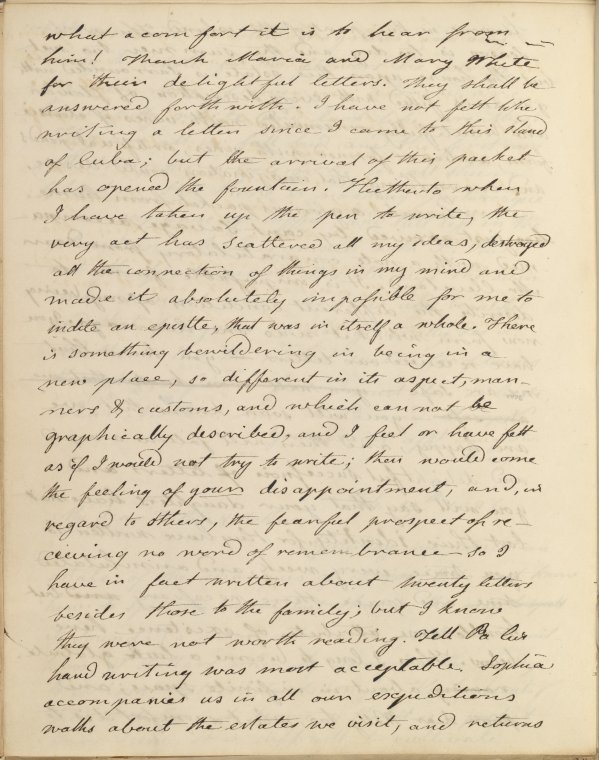 what a comfort it is to hear from
him! Thank Maria and Mary White
for their delightful letters. They shall be
answered forthwith. I have not felt like
writing a letter since I came to this Island
of Cuba; but the arrival of this packet
has opened the fountain. Hetherto when
I have taken up the pen to write, the
very act has scattered all my ideas, destroyed
all the connection of things in my mind and
made it absolutely impossible for me to
indite an epistle, that was in itself a whole. There
is something bewildering in being in a
new place, so different in its aspect, man-
ners & customs, and which can not be
graphically described, and I feel or have felt
as if I would not try to write; then would come
the feeling of your disappointment, and, in
regard to others, the fearful prospect of re-
ceiving no word of remembrance — so I
have in fact written about twenty letters
besides those to the family; but I know
they were not worth reading. Tell Pa his
hand writing was most acceptable. Sophia
accompanies us in all our expeditions
walks about the estates we visit, and returns